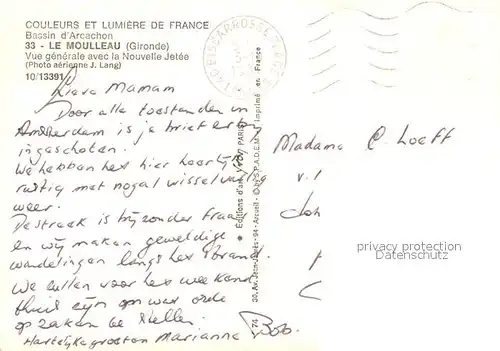 COULEURS ET LUMIÈRE DE FRANCE
Bassin d'Arcachon
33 - LE MOULLEAU (Gironde)
Vue générale avec la Nouvelle Jetée
(Photo aérienne J. Lang)
10/13391
BISCARROSSE PLAGE
Lieve Mamam
Door alle toestanden in
Amsterdam is je brief er bij
ingeschoten.
We hebben het hier heerlijk
rustig met nogal wisselvallig
weer.
De streek is bijzonder fraai
en wij maken geweldige
wandelingen langs het strand.
We zullen voor het weekend
thuis zijn om wat orde
op zaken te stellen.
Hartelijke groeten Marianne
Bob.
★ Éditions d'art PARIS Imprimé en France
30, Av. Jean-Jaurès - 94 - Arcueil - © by S.P.A.D.E.M.
74
Madame C. Loeff
privacy protection
Datenschutz